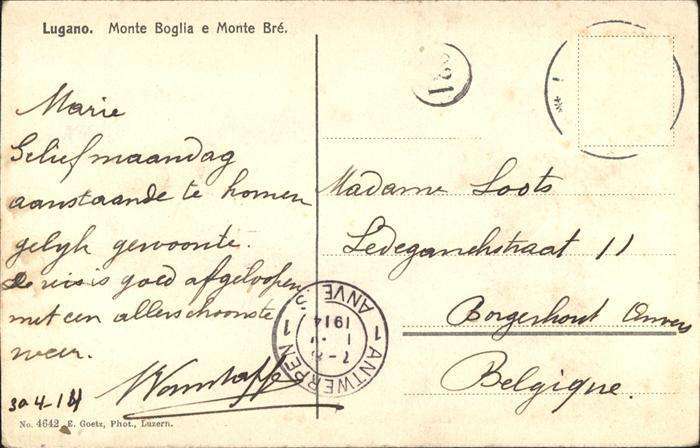 Lugano. Monte Boglia e Monte Bré.
Marie
Gelief maandag
aanstaande te komen
gelijk gewoonte.
De reis is goed afgeloopen
met een allerschoonste
weer.
30-4-14
No. 4642 E. Goetz, Phot., Luzern.
Madame Loots
Ledeganckstraat 11
Borgerhout Anvers
Belgique.
1 ANTWERPEN 1
ANVERS
1914